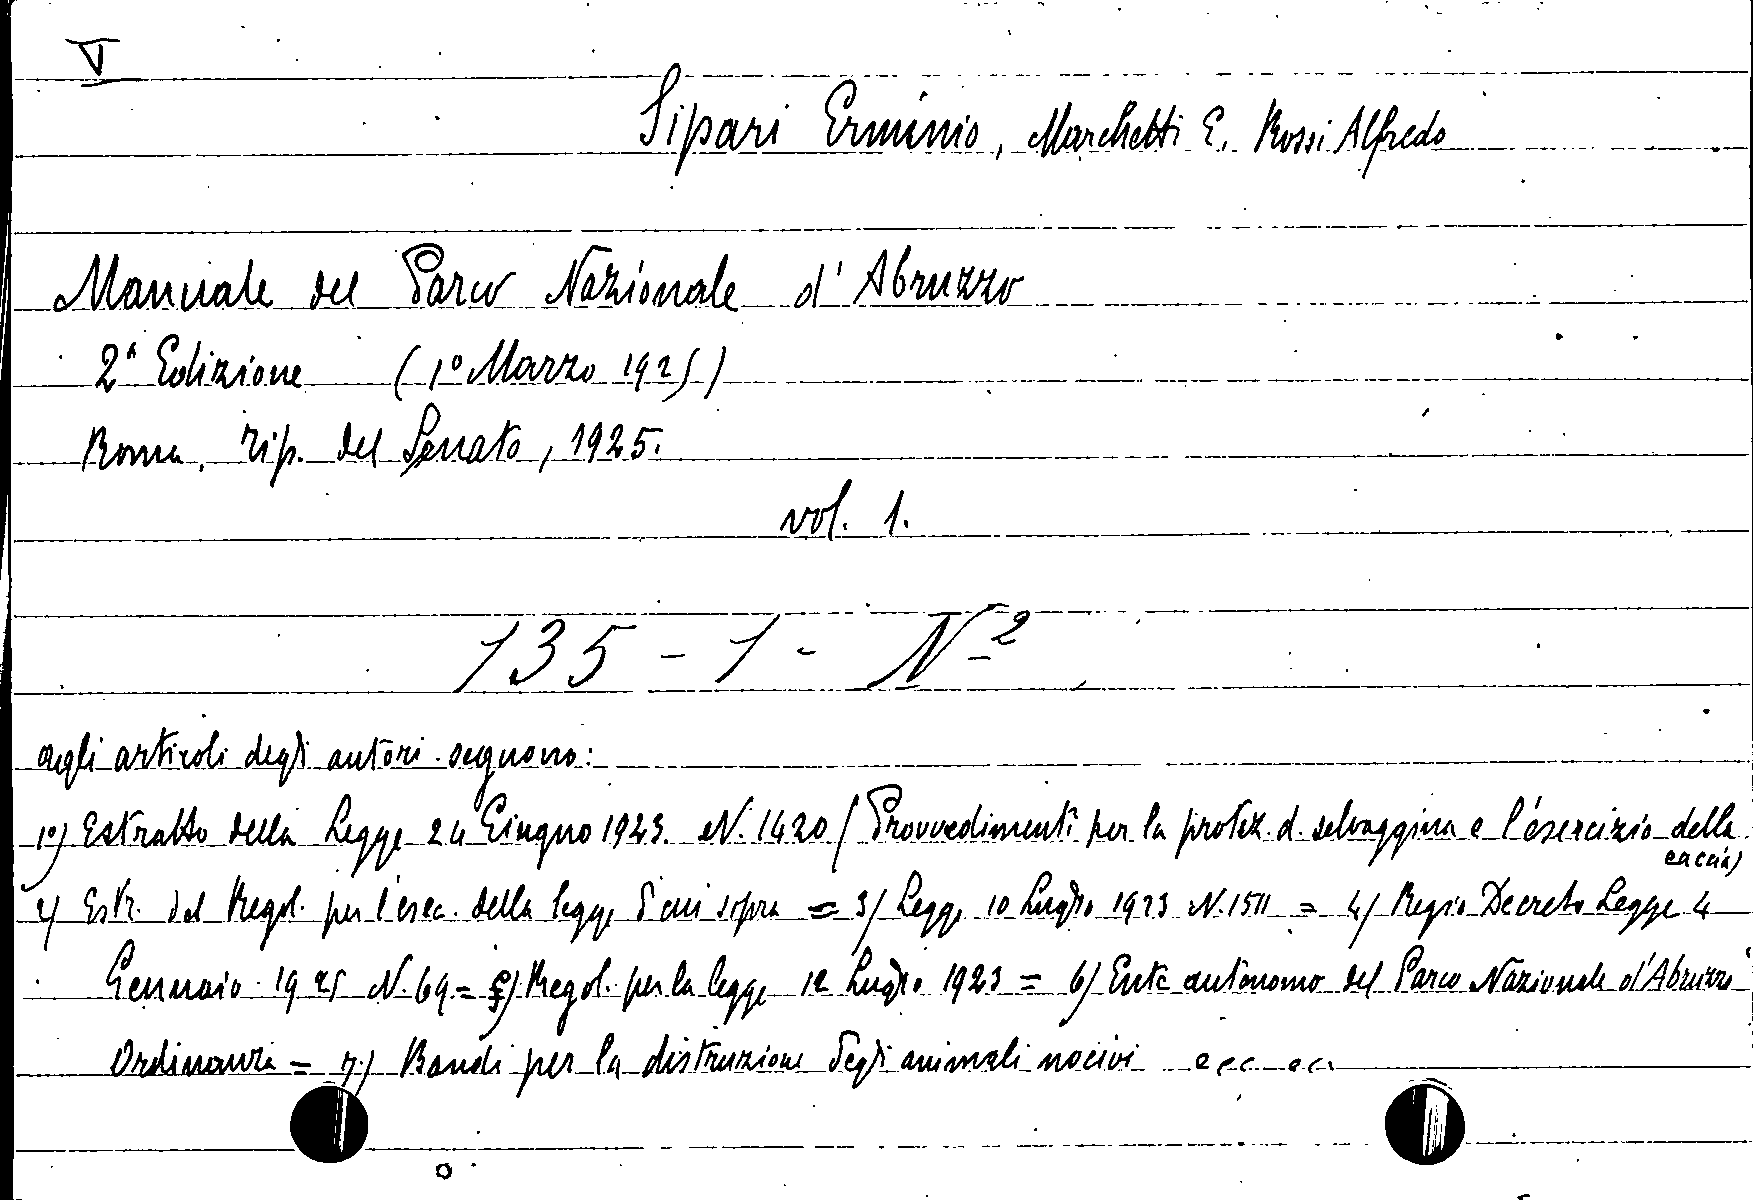 V
Sipari Erminio, Marchetti E. Rossi Alfredo
Manuale del Parco Nazionale d'Abruzzo
2ª Edizione (1º Marzo 1925)
Roma, Tip. del Senato, 1925.
vol. 1.
135 - 1 - Nº 2
agli articoli degli autori seguono:
1º) Estratto della Legge 24 Giugno 1923. N. 1420 (Provvedimenti per la protez. d. selvaggina e l'esercizio della
caccia)
2) Estr. del Regol. per l'esec. della legge di cui sopra = 3) Legge 10 Luglio 1923 N. 1511 = 4) Regio Decreto Legge 4
Gennaio 1925 N. 69 = 5) Regol. per la legge 12 Luglio 1923 = 6) Ente autonomo del Parco Nazionale d'Abruzzo
Ordinanza = 7) Bandi per la distruzione degli animali nocivi ecc ecc